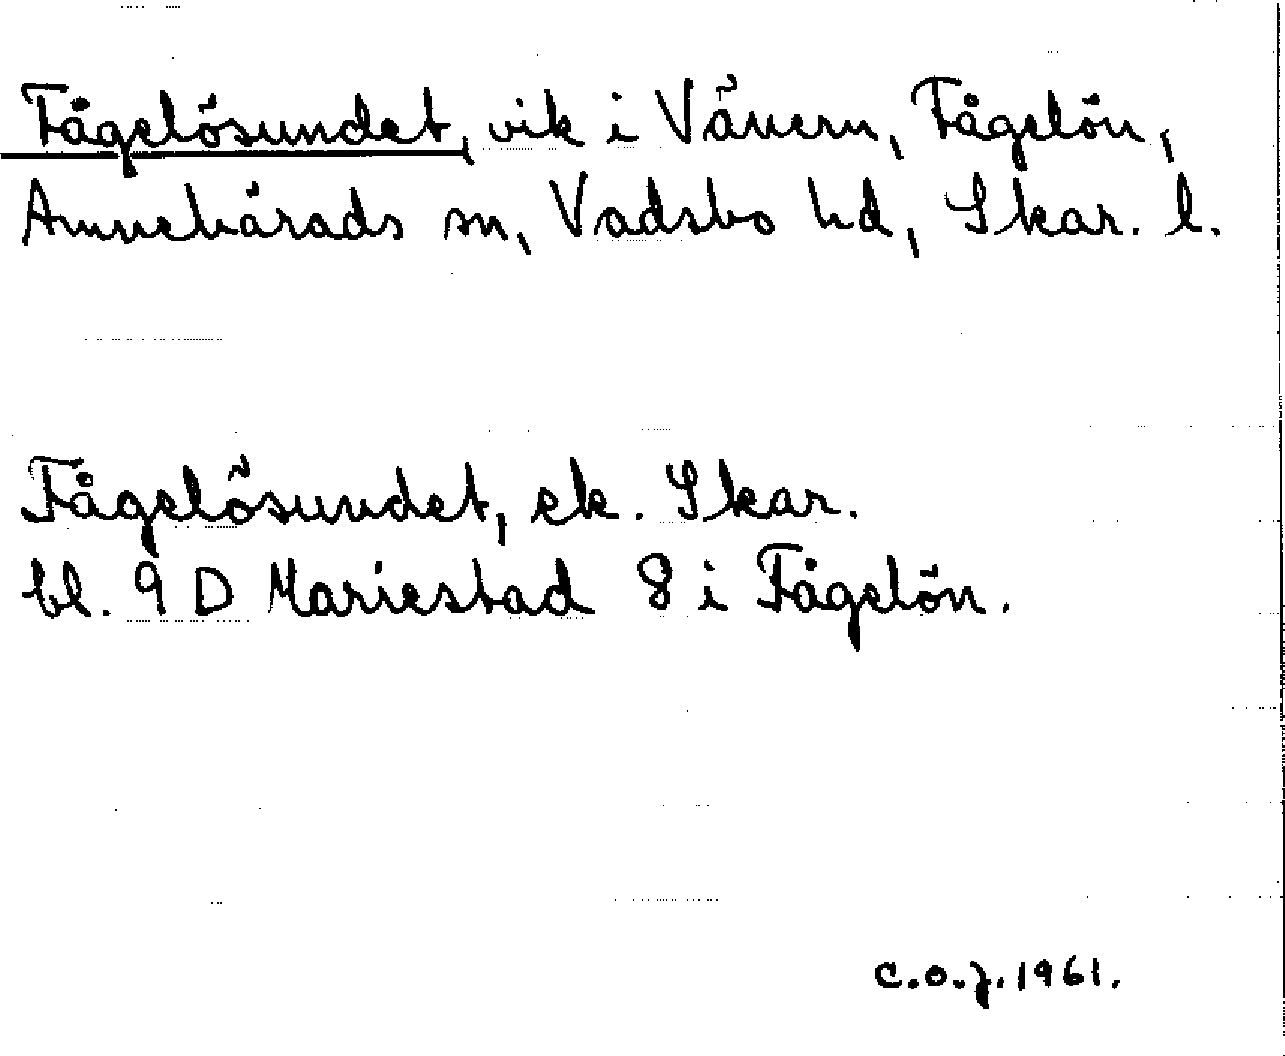 Fågelösundet, vik i Vänern, Fågelön,
Amnehärads sn, Vadsbo hd, Skar. l.
Fågelösundet, ek. Skar.
bl. 9 D Mariestad 8 i Fågelön.
C.O.J. 1961.